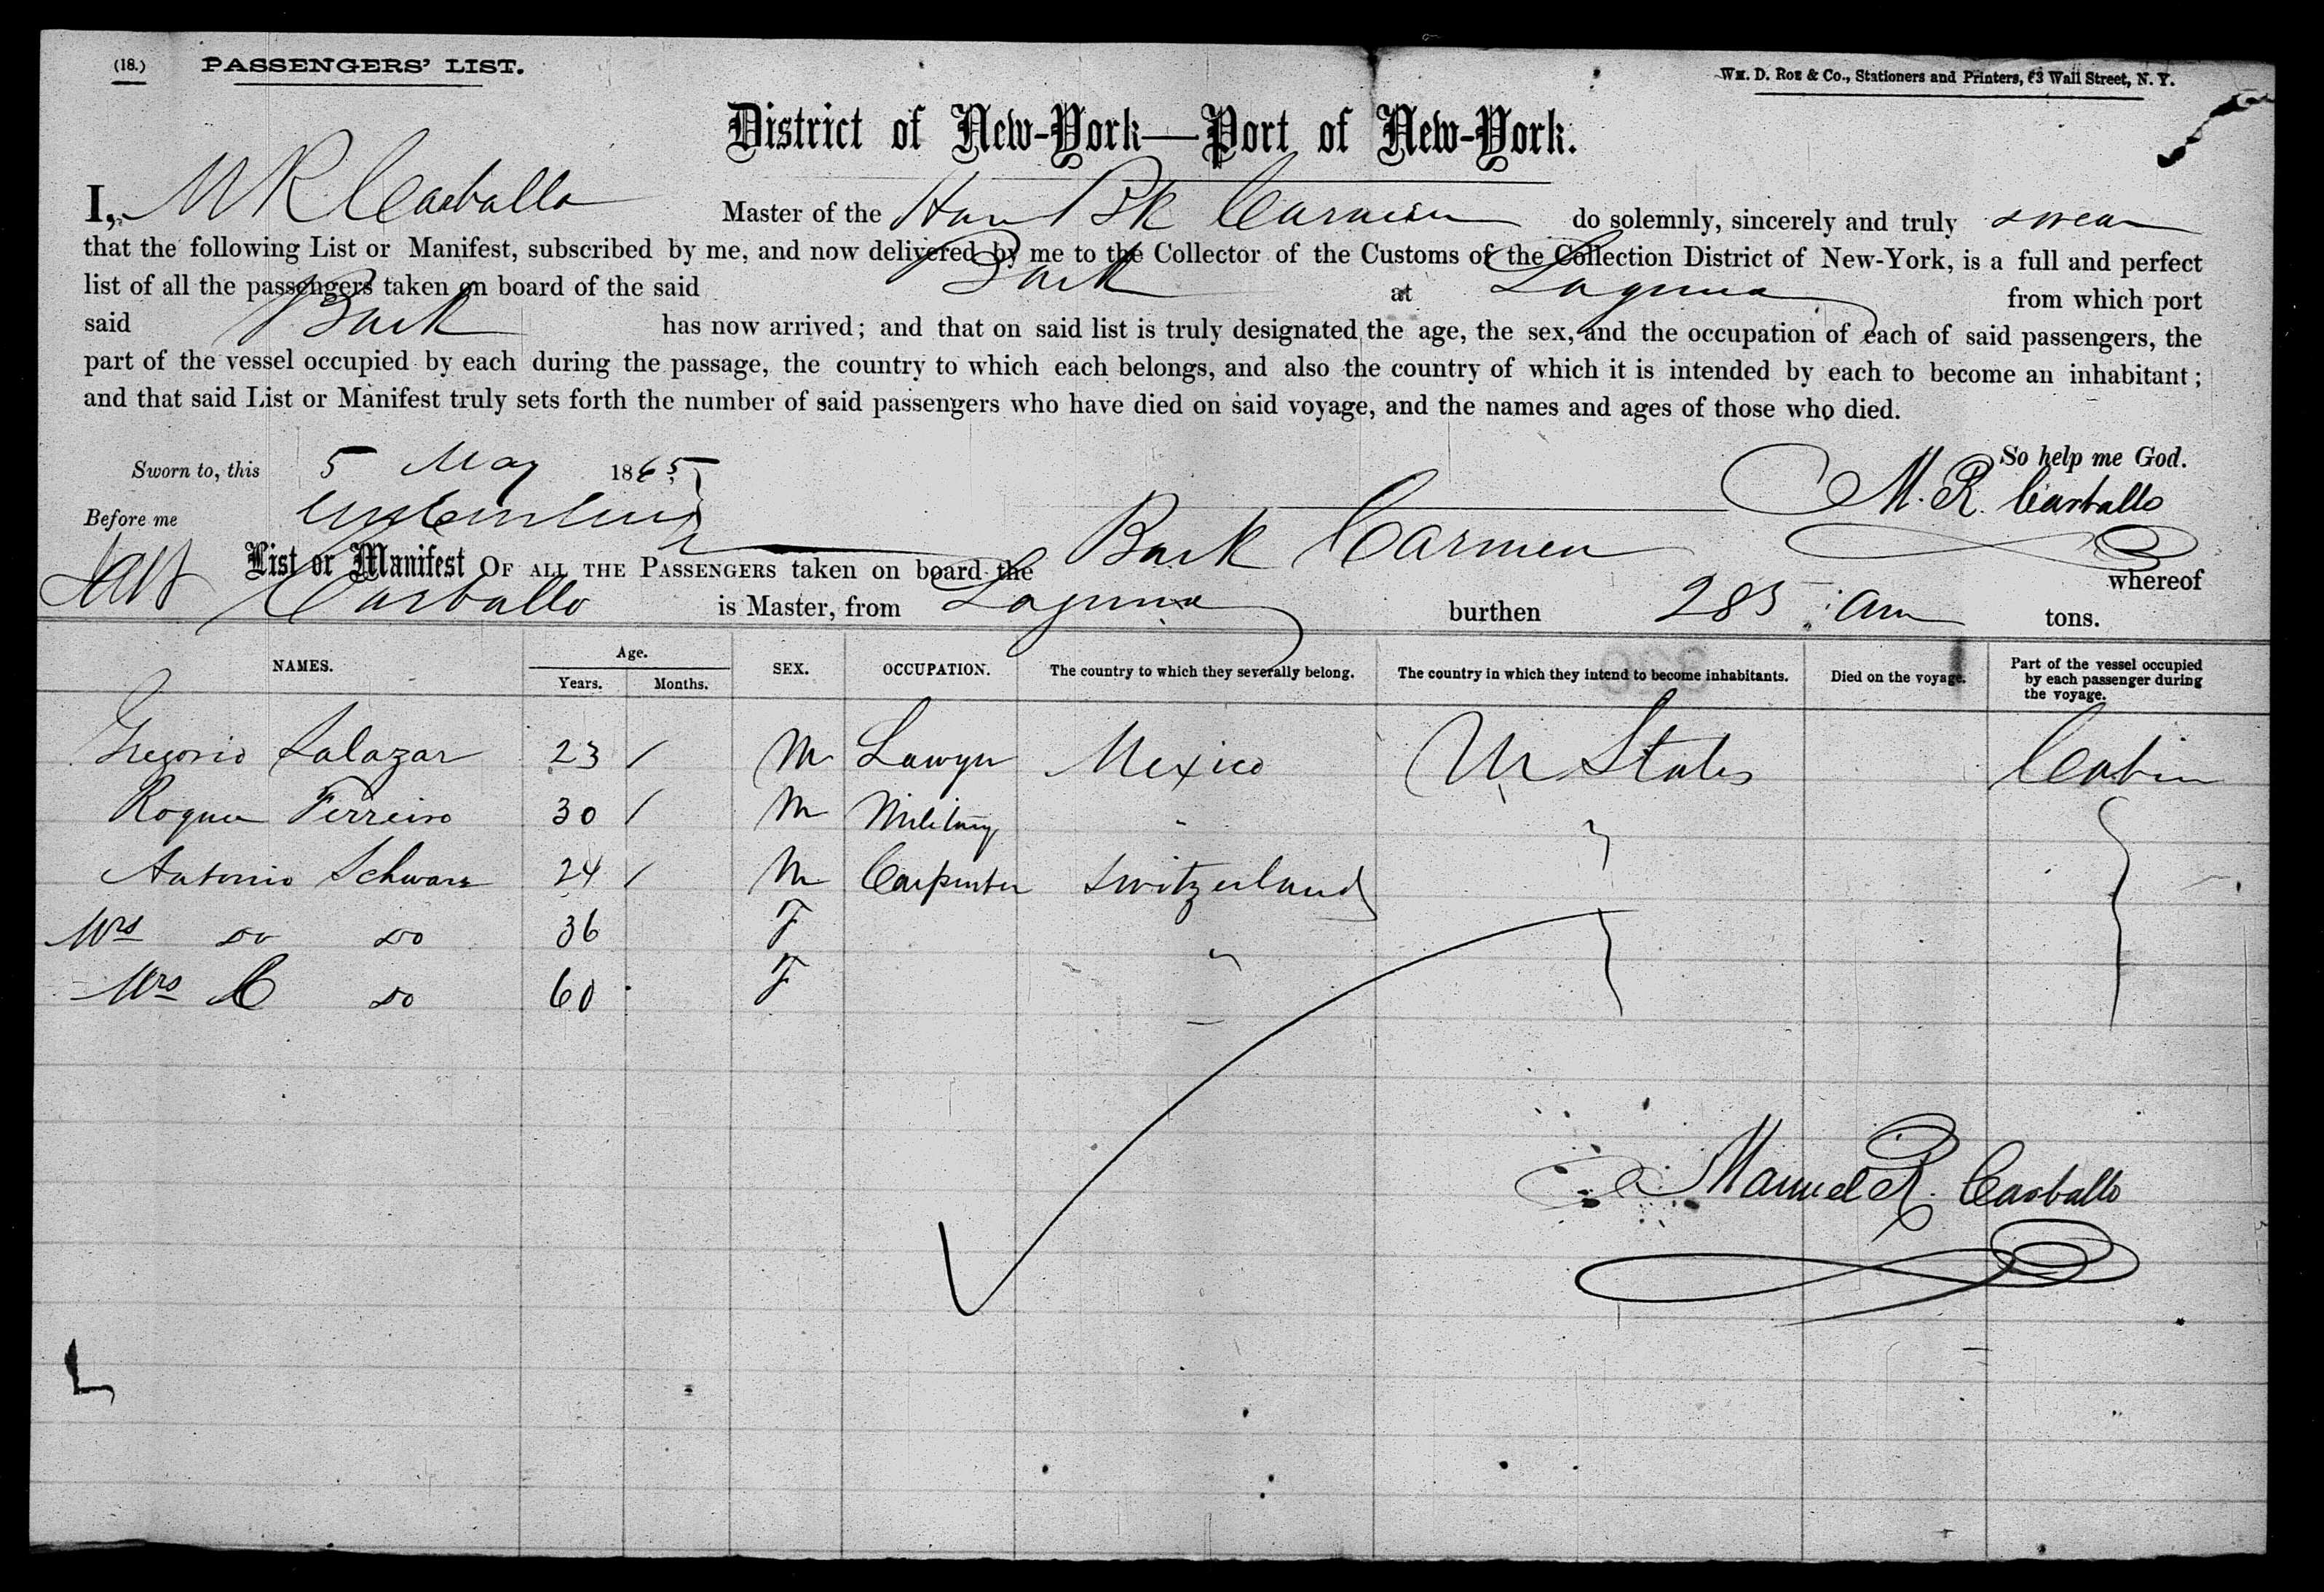 (18.) PASSENGERS' LIST.
WM. D. ROE & Co., Stationers and Printers, 63 Wall Street, N. Y.
District of New-York—Port of New-York.
I, M R Carballo Master of the Han Bk Carmen do solemnly, sincerely and truly swear
that the following List or Manifest, subscribed by me, and now delivered by me to the Collector of the Customs of the Collection District of New-York, is a full and perfect
list of all the passengers taken on board of the said Bark at Laguna from which port
said Bark has now arrived; and that on said list is truly designated the age, the sex, and the occupation of each of said passengers, the
part of the vessel occupied by each during the passage, the country to which each belongs, and also the country of which it is intended by each to become an inhabitant;
and that said List or Manifest truly sets forth the number of said passengers who have died on said voyage, and the names and ages of those who died.
So help me God.
Sworn to, this 5 May 1865
M. R. Carballo
Before me
List or Manifest OF ALL THE PASSENGERS taken on board the Bark Carmen whereof
Carballo is Master, from Laguna burthen 285 tons.
NAMES. Age. Years. Months. SEX. OCCUPATION. The country to which they severally belong. The country in which they intend to become inhabitants. Died on the voyage. Part of the vessel occupied by each passenger during the voyage.
Gregorio Salazar 23 / M Lawyer Mexico Un States Cabin
Roque Ferreiro 30 / M Military "
Antonio Schwarz 24 / M Carpenter Switzerland
Mrs do do 36 F "
Mrs do 60 F
Manuel R. Carballo